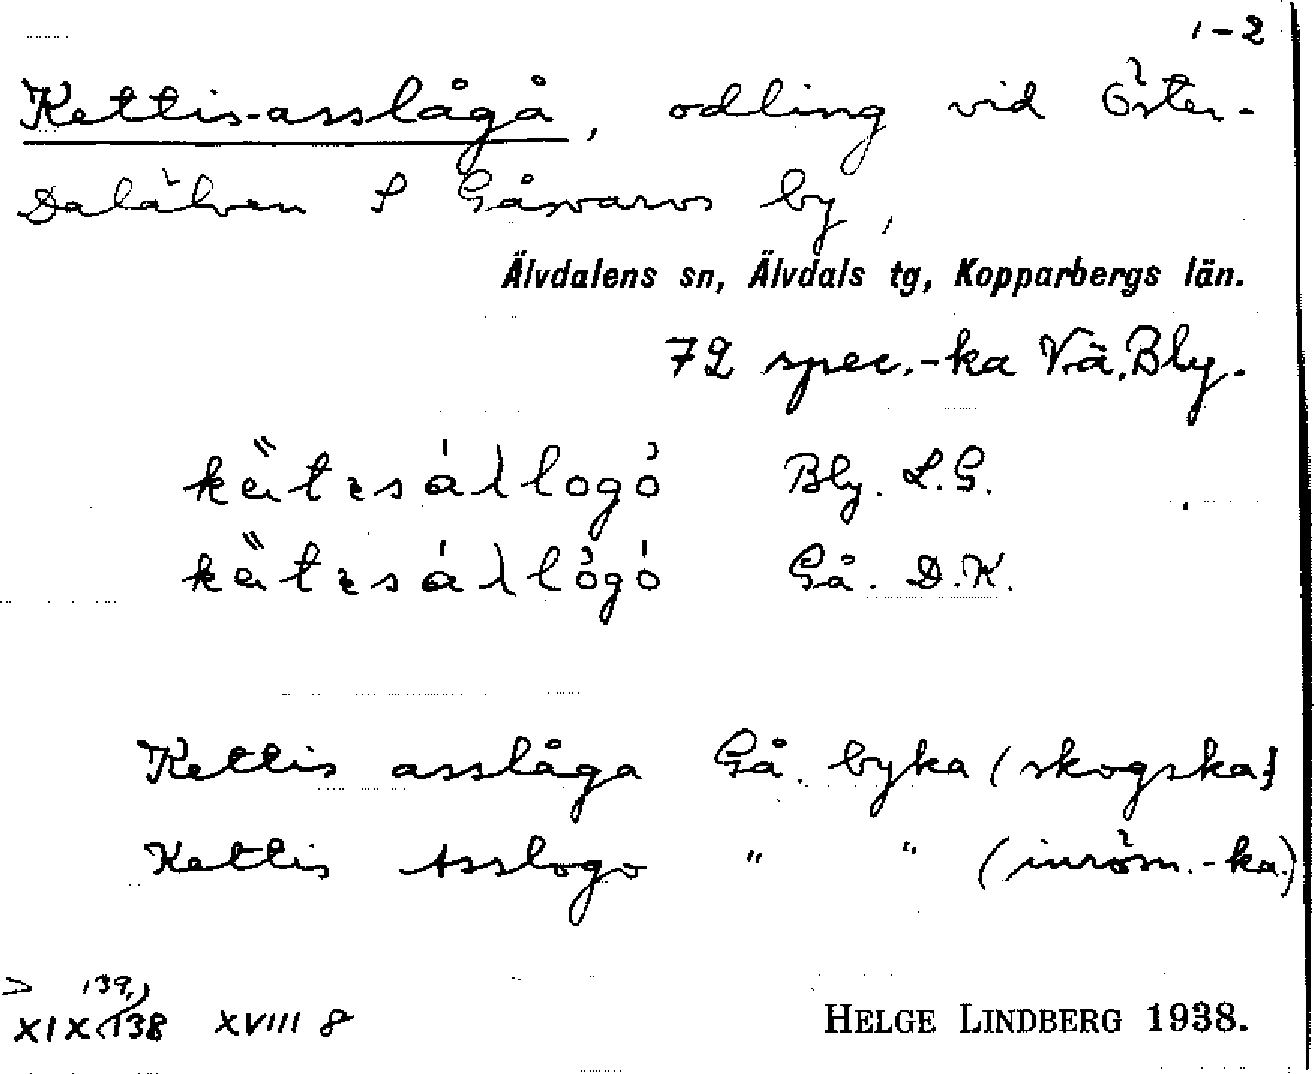 1-2
Kettis-asslågå, odling vid Öster-
Dalälven S Gåsvarvs by,
Älvdalens sn, Älvdals tg, Kopparbergs län.
72 spec.-ka Vä.Bly.
Bly. L.G.
Gå. D.K.
Kettis asslåga Gå. byka (skogska)
Kettis Asslogo " " (inröm.-ka.)
> 139,
XIX 138 XVIII 8
HELGE LINDBERG 1938.